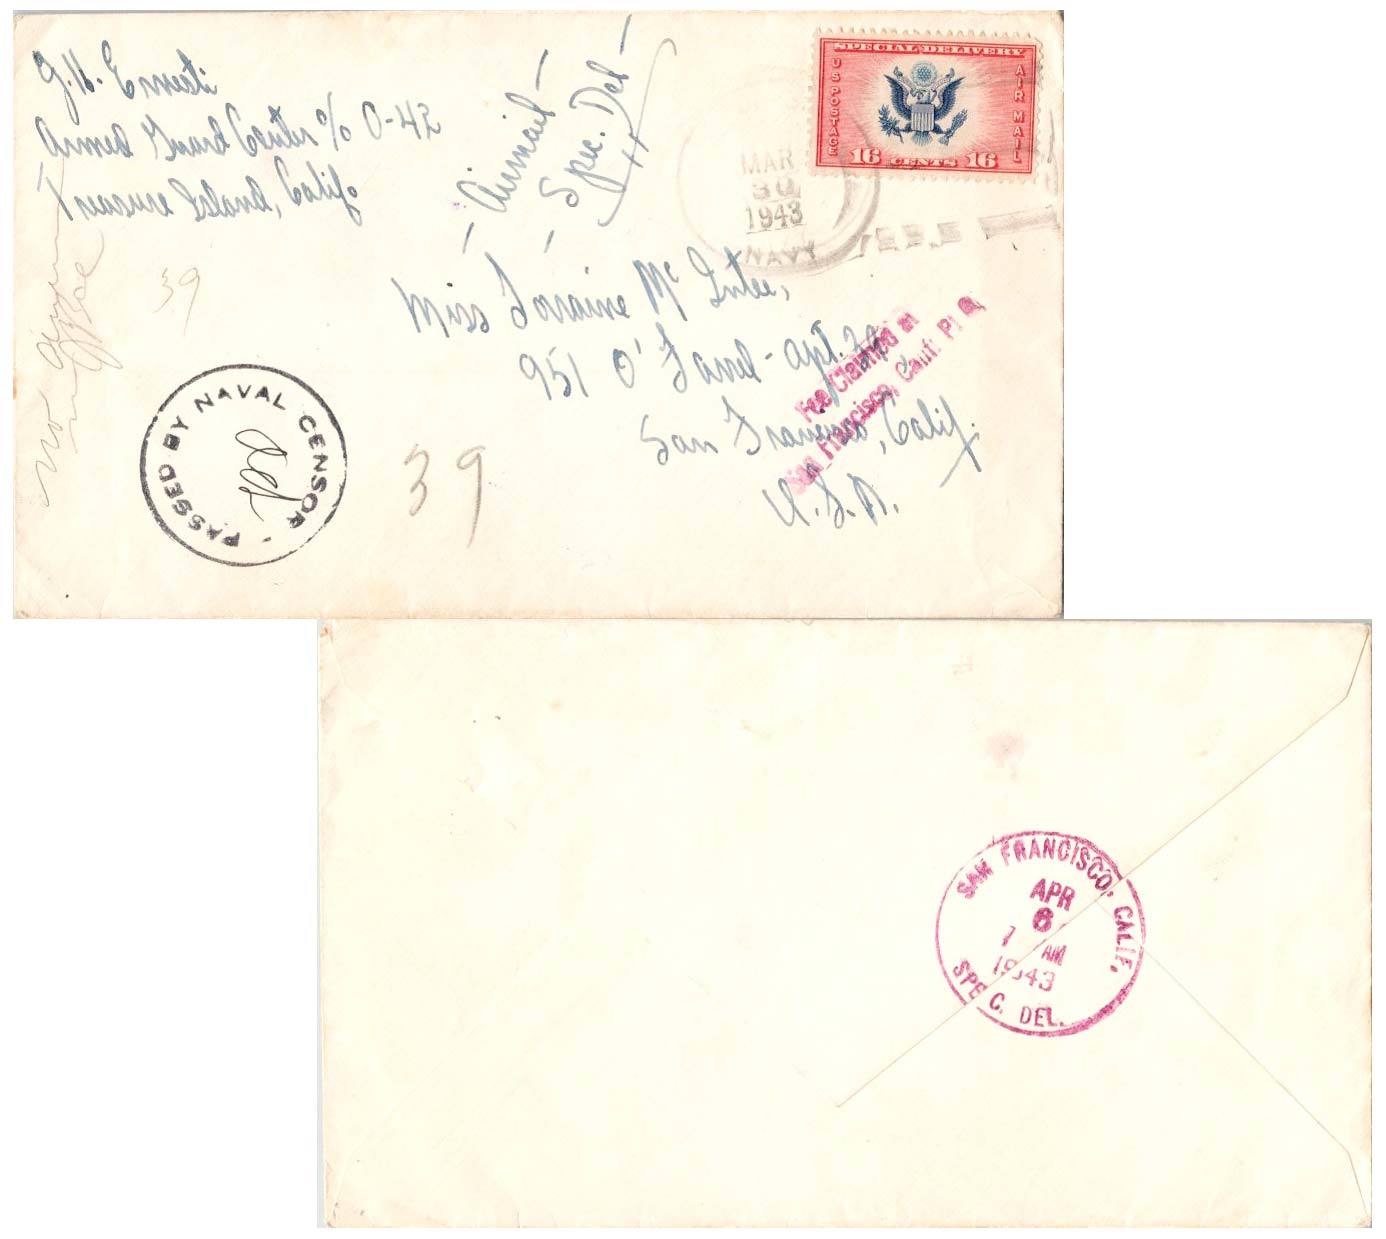 J. H. Ernesti
Armed Guard Center c/o O-42
Treasure Island, Calif.
- Airmail -
- Spec. Del -
SPECIAL DELIVERY
US POSTAGE
AIR MAIL
16 CENTS 16
MAR
30
1943
NAVY
Miss Lorraine McIntee,
951 O'Farrel - apt. 39
San Francisco, Calif.
U.S.A.
Fee Claimed at
San Francisco, Calif.
39
no
PASSED BY NAVAL CENSOR
39
SAN FRANCISCO, CALIF.
APR
6
7 AM
1943
SPEC. DEL.